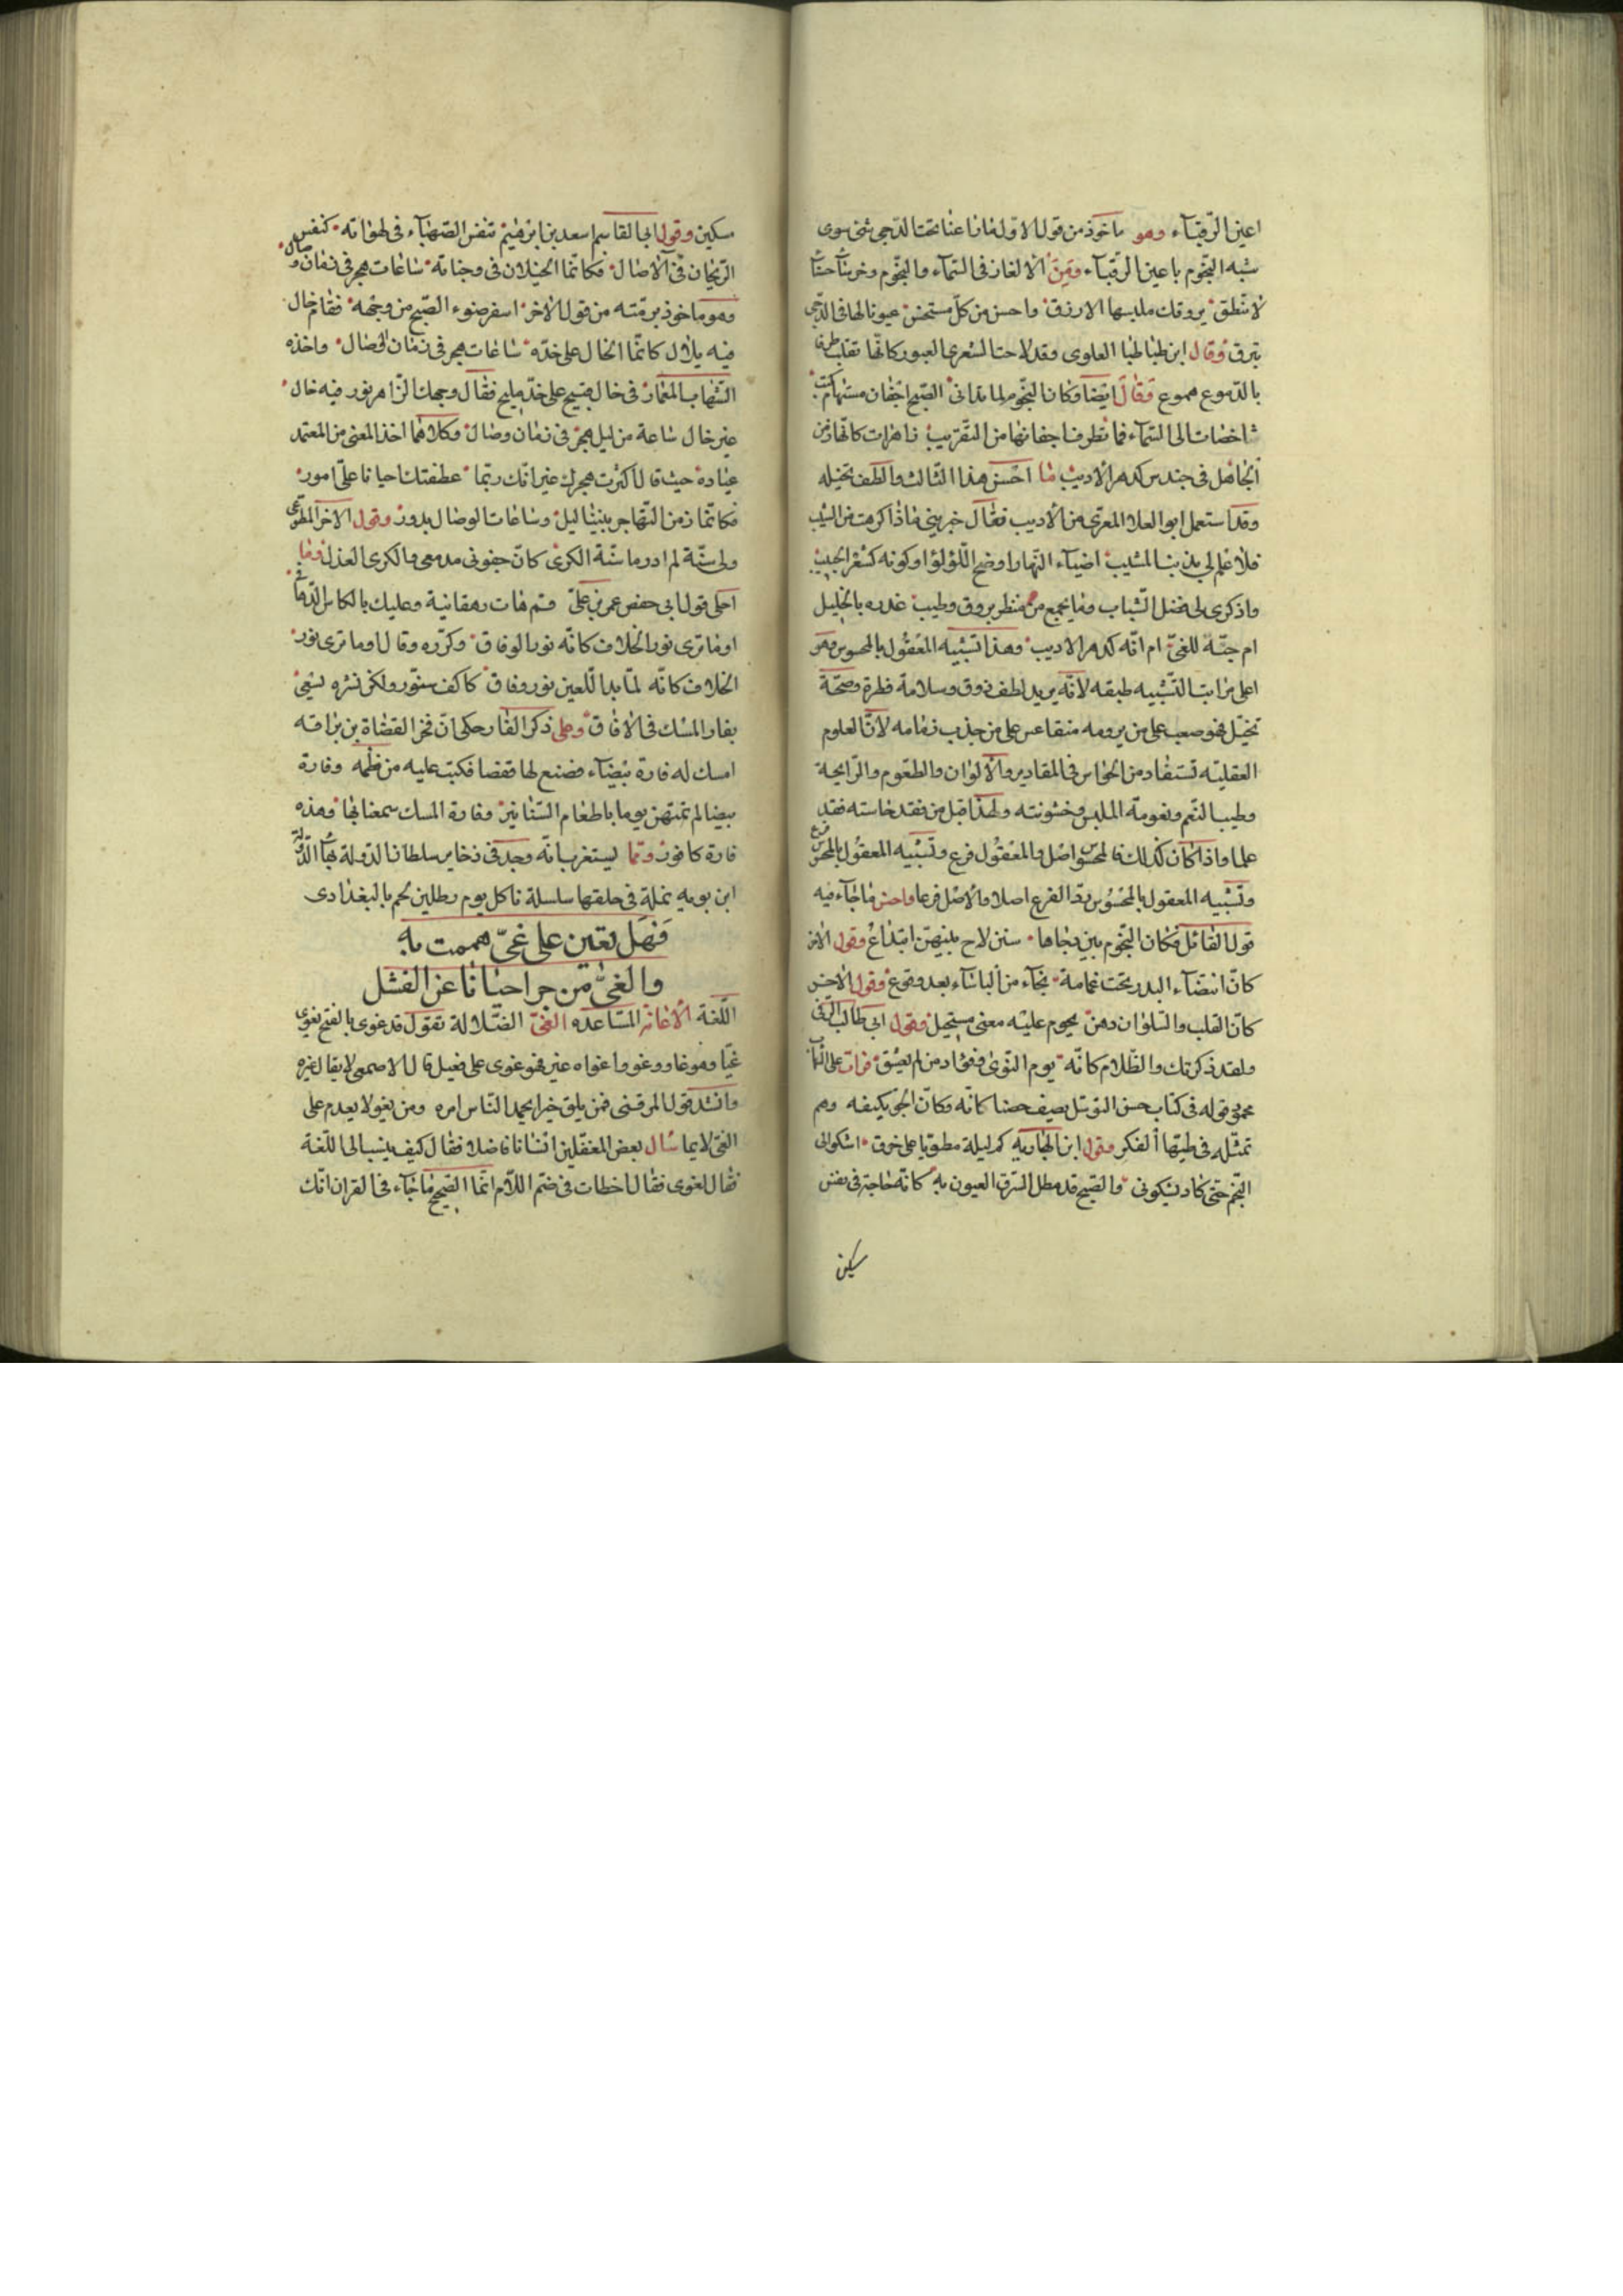 اعين الرّقبآء وهو مأخوذ من قول الاوّل فانا عنا تحت الدّجى شئ سوى
شبه النجوم باعين الرقبآء ومن الالغاز فى السّمآء والنجوم وخرسآ حسنآ
لا تنطق يروقك ملبسها الازرق واحسن من كلّ مستحسن عيونا لها فى الدّجى
تبرق وقال ابن طباطبا العلوى وقد لاحت الشعرى العبور كانّها تقلب طرف
بالدّموع هموع وقال ايضا وكان النجوم لما تدانى الصّبح اجفان مستهام كئيب
شاخصات الى السّمآء فما تطرف اجفانها من التقريب زاهرات كانّها زمن
الجاهل فى حندس كدهر الاديب ما احسن هذا الثالث والطف تخيله
وقد استعمل ابو العلا المعرّى من الاديب فقال خبرينى ماذا كرهت من الشيب
فلا علم لى بذنب المشيب اضيآء النّهار ا وضح اللؤلؤ او كونه كثغر الحبيب
واذكرى لى فضل الشّباب وما يجمع من منظر يروق وطيب غدره بالخليل
ام حبّه للغىّ ام انّه كدهر الاديب وهذا تشبيه المعقول بالمحسوس وهو
اعلى مراتب التّشبيه طبقه لانّه يريد لطف ذوق وسلامة فطرة وصحّة
تخيّل فهو صعب على من يرومه متقاعس على من جذب زمامه لانّ العلوم
العقليّه تستفاد من الحواس فى المقادير والالوان والطعوم والرّايحة
وطيب النّغم ونعومة الملبس وخشونته ولهذا قيل من فقد حاسته فقد
علما واذا كان كذلك فالمحسوس اصل والمعقول فرع وتشبيه المعقول بالمحسوس فرع
وتشبيه المعقول بالمحسوس يردّ الفرع اصلا والاصل فرعا واحسن ما جآء فيه
قول القائل وكان النّجوم بين دجاها سنن لاح بينهنّ ابتداع وقول الاخر
كانّ انتضآء البدر تحت غمامة نجآء من البأسآء بعد وقوع وقول الاخر
كانّ القلب والسّلوان ذهن يحوم عليه معنى مستحيل وقول ابى طالب الرّقّى
ولقد ذكرتك والظّلام كانّه يوم النّوى وفؤاد من لم يعشق قرات على الشهاب
محمود قوله فى كتاب حسن التوسّل يصف حصنا كانّه وكانّ الجوّ يكنفه وهم
تمثّله فى طيّها الفكر وقول ابن الهباريه كم ليلة مطويّا على حرق اشكو الى
النّجم حتى كاد يشكونى والصّبح قد مطل الشرق العيون به كانّه حاجة فى نفس
سكين
سكين وقول ابى القاسم اسعد بن ابرهيم تنفس الصّهبآء فى لهواته كنفس
الرّيحان فى الاصال فكانّما الخيلان فى وجناته ساعات هجر فى زمان وصال
وهو ماخوذ برمّته من قول الاخر اسفر ضوء الصّبح من وجهه فقام خال
فيه بلال كانّما الخال على خدّه ساعات هجر فى زمان الوصال واخذه
الشّهاب المعمار فى خال قبيح على خدّ مليح فقال وجهك الزّاهر نور فيه خال
غير خال ساعة من ليل هجر فى زمان وصال وكلاهما اخذ المعنى من المعتمد
عبّاده حيث قال اكثرت هجرك غير انّك ربّما عطفتك احيانا علىّ امور
فكانّما زمن التّهاجر بيننا ليل وساعات الوصال بدور وقول الاخر المطوّعى
ولى سنّة لم ادر ما سنّة الكرى كانّ جفونى مدمعى والكرى العذل وما
احلى قول ابى حفص عمر بن علىّ قم هات دهقانية وعليك بالكاس الدّهاق
اوما ترى نور الخلاف كانّه نور الوفاق وكرّره وقال اوما ترى نور
الخلاف كانّه لمّا بدا للعين نور وفاق كاكف سنّور ولكن نشره يشفى
بفار المسك فى الافاق وعلى ذكر الفار حكى انّ فخر القضاة بن براقه
امسك له فارة بيضآء فصنع لها قفصا فكتب عليه من نظمه وفارة
بيضا لم تمتهن يوما باطعام السّنانير وفارة المسك سمعنا بها وهذه
فارة كافور وممّا يستغرب انّه وجد فى ذخاير سلطان الدّولة بهآء الدّولة
ابن بويه نملة فى حلقها سلسلة تاكل كل يوم رطلين لحم بالبغدادى
فَهَل تعين على غىّ هممت به
والغىّ من جر احيانا عن الفشل
اللّغة الاعانة المساعده الغىّ الضّلالة تقول قد غوى بالفتح يغوى
غيّا وهو غاو وغو واغواه غير فهو غوى على فعيل قال الاصمعى لا يقال غيره
وانشد قول المرقش فمن يلق خيرا يحمد النّاس امره ومن يغو لا يعدم على
الغىّ لايما سال بعض المغفّلين انسانا فاضلا فقال كيف ينسب الى اللّغة
فقال لغوى فقال اخطات فى ضم اللّام انّما الصّحيح ما جآء فى القران انّك